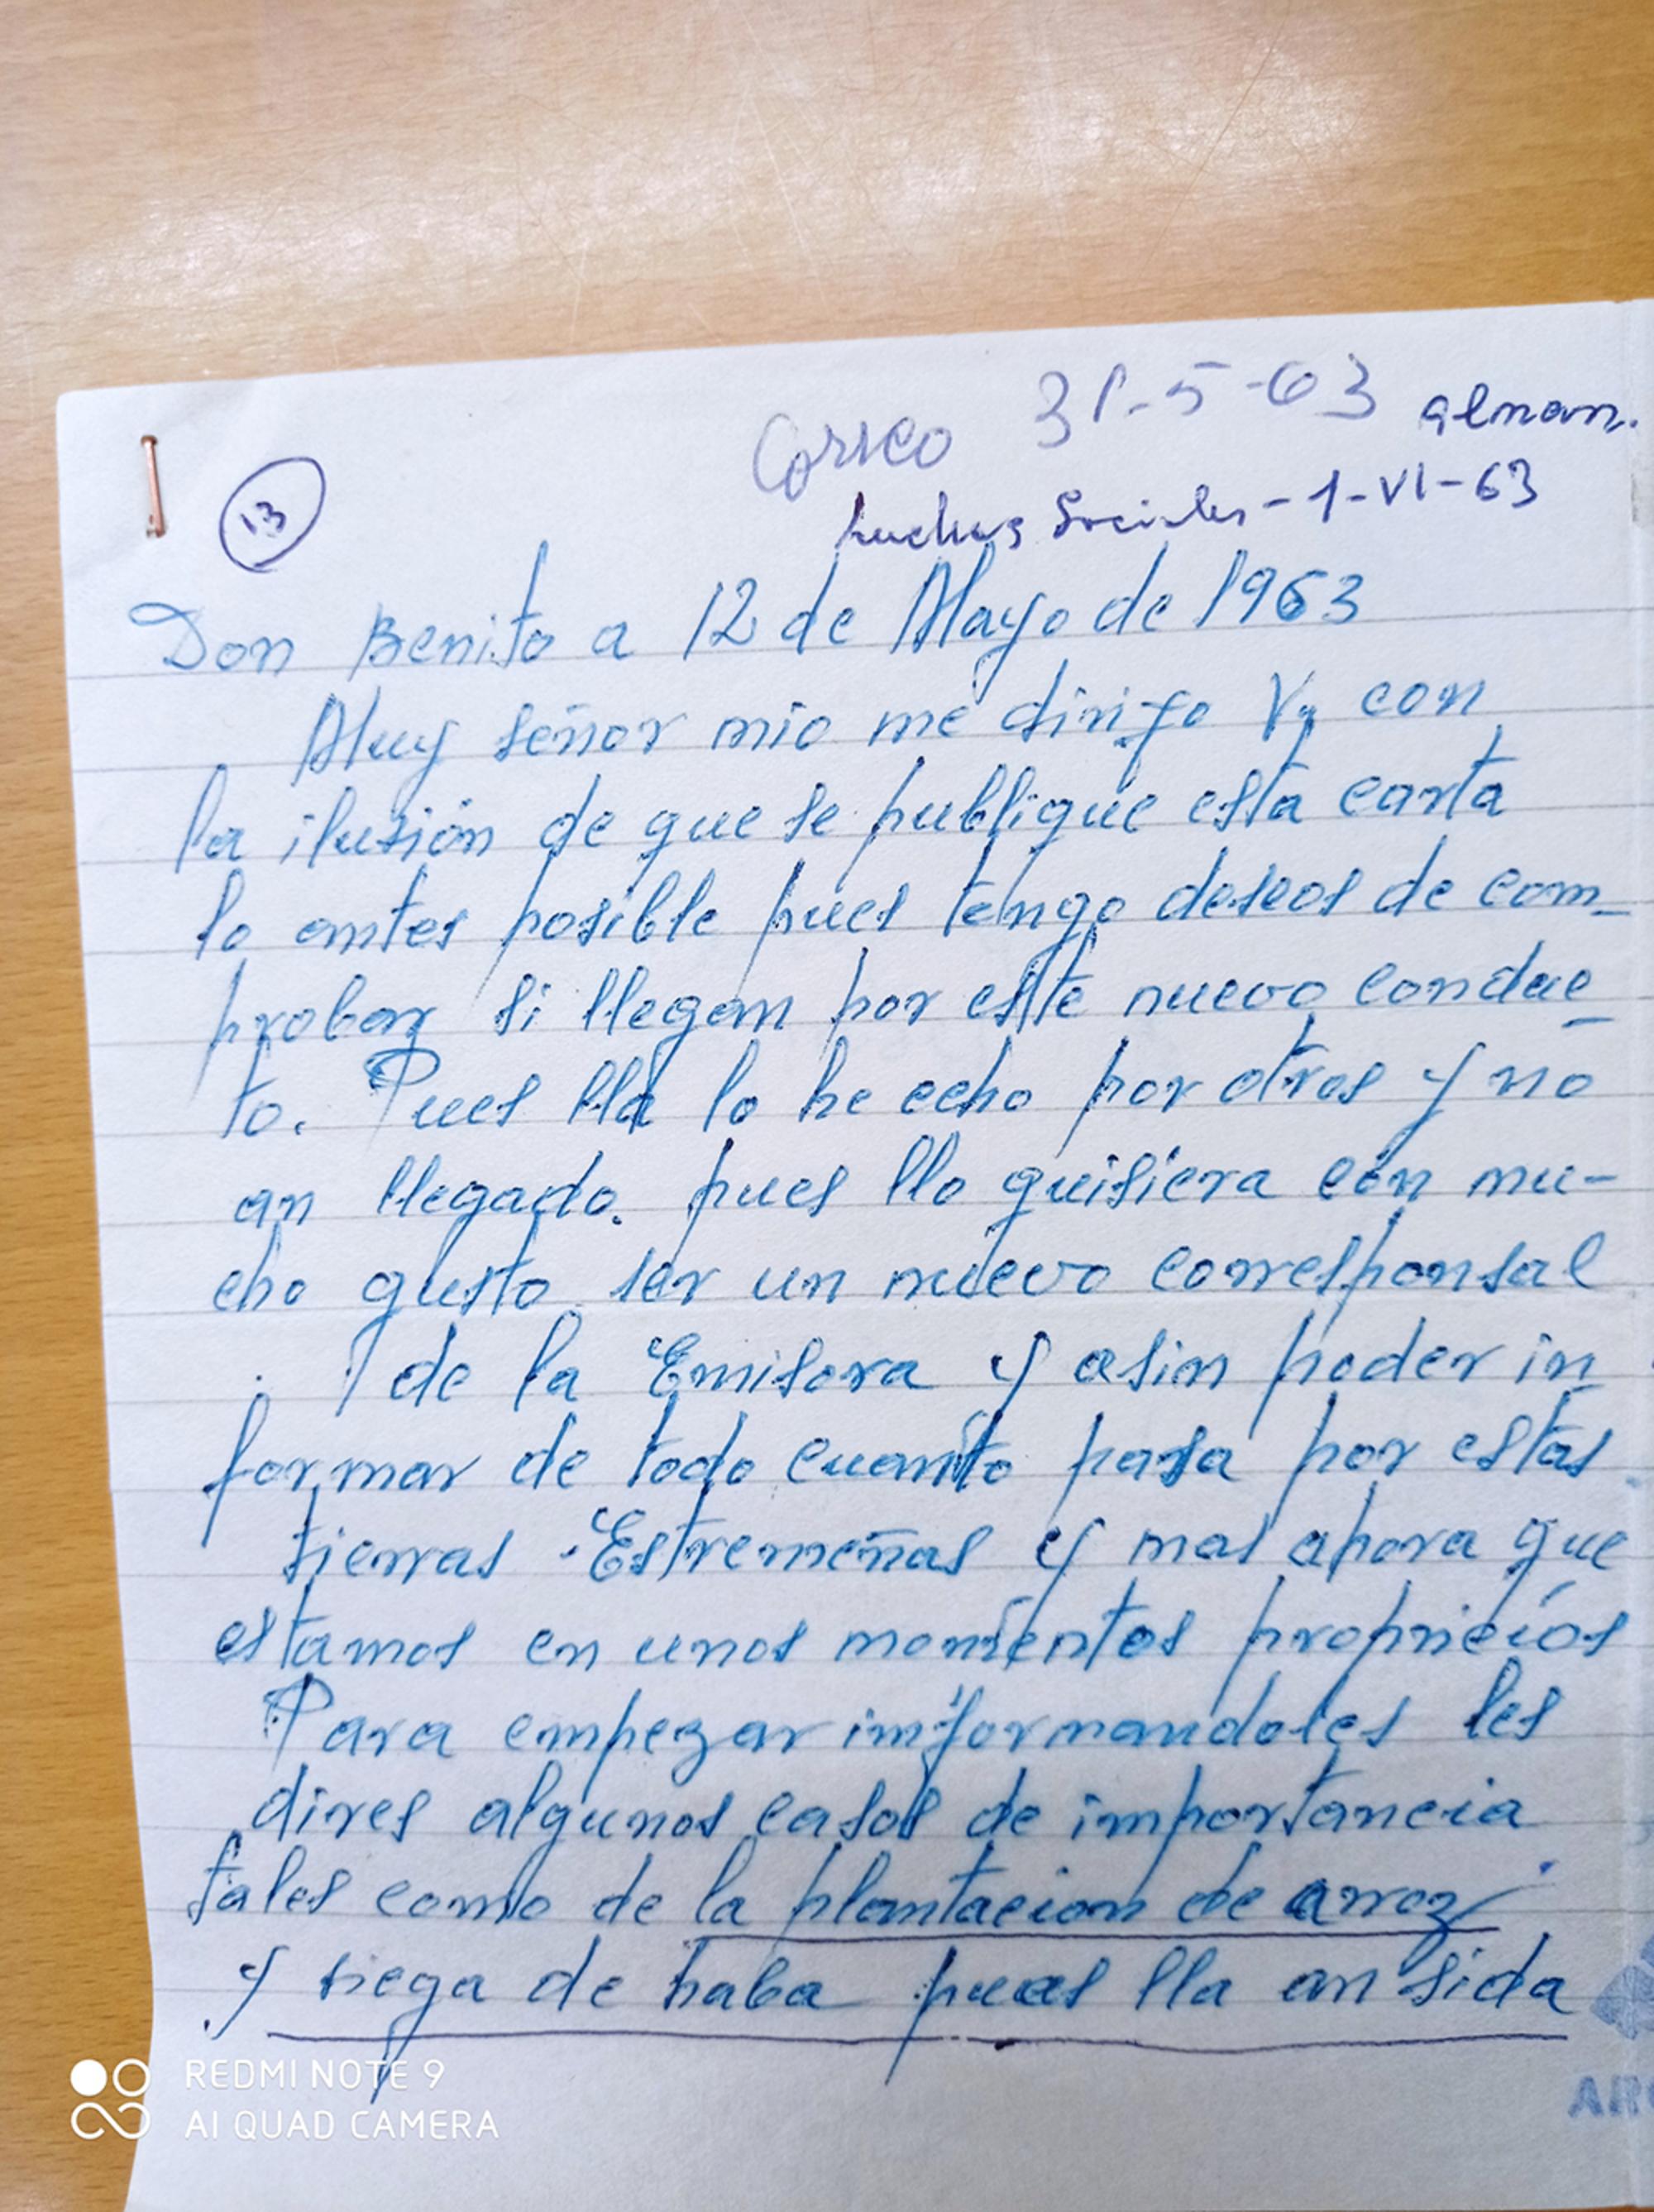 Correo 31-5-63 alman.
13
Luchas Sociales - 1-VI-63
Don Benito a 12 de Mayo de 1963
Muy señor mio me dirijo V. con
la ilusión de que se publique esta carta
lo antes posible pues tengo deseos de com-
probar si llegan por este nuevo conduc-
to. Pues lla lo he echo por otros y no
an llegado. pues llo quisiera con mu-
cho gusto ser un nuevo corresponsal
de la Emisora y asin poder in
formar de todo cuanto pasa por estas
tierras Estremeñas y mas ahora que
estamos en unos momentos
Para empezar informandoles les
dires algunos casos de importancia
tales como de la plantacion de arroz
y siega de haba pues lla an sida
REDMI NOTE 9
AI QUAD CAMERA